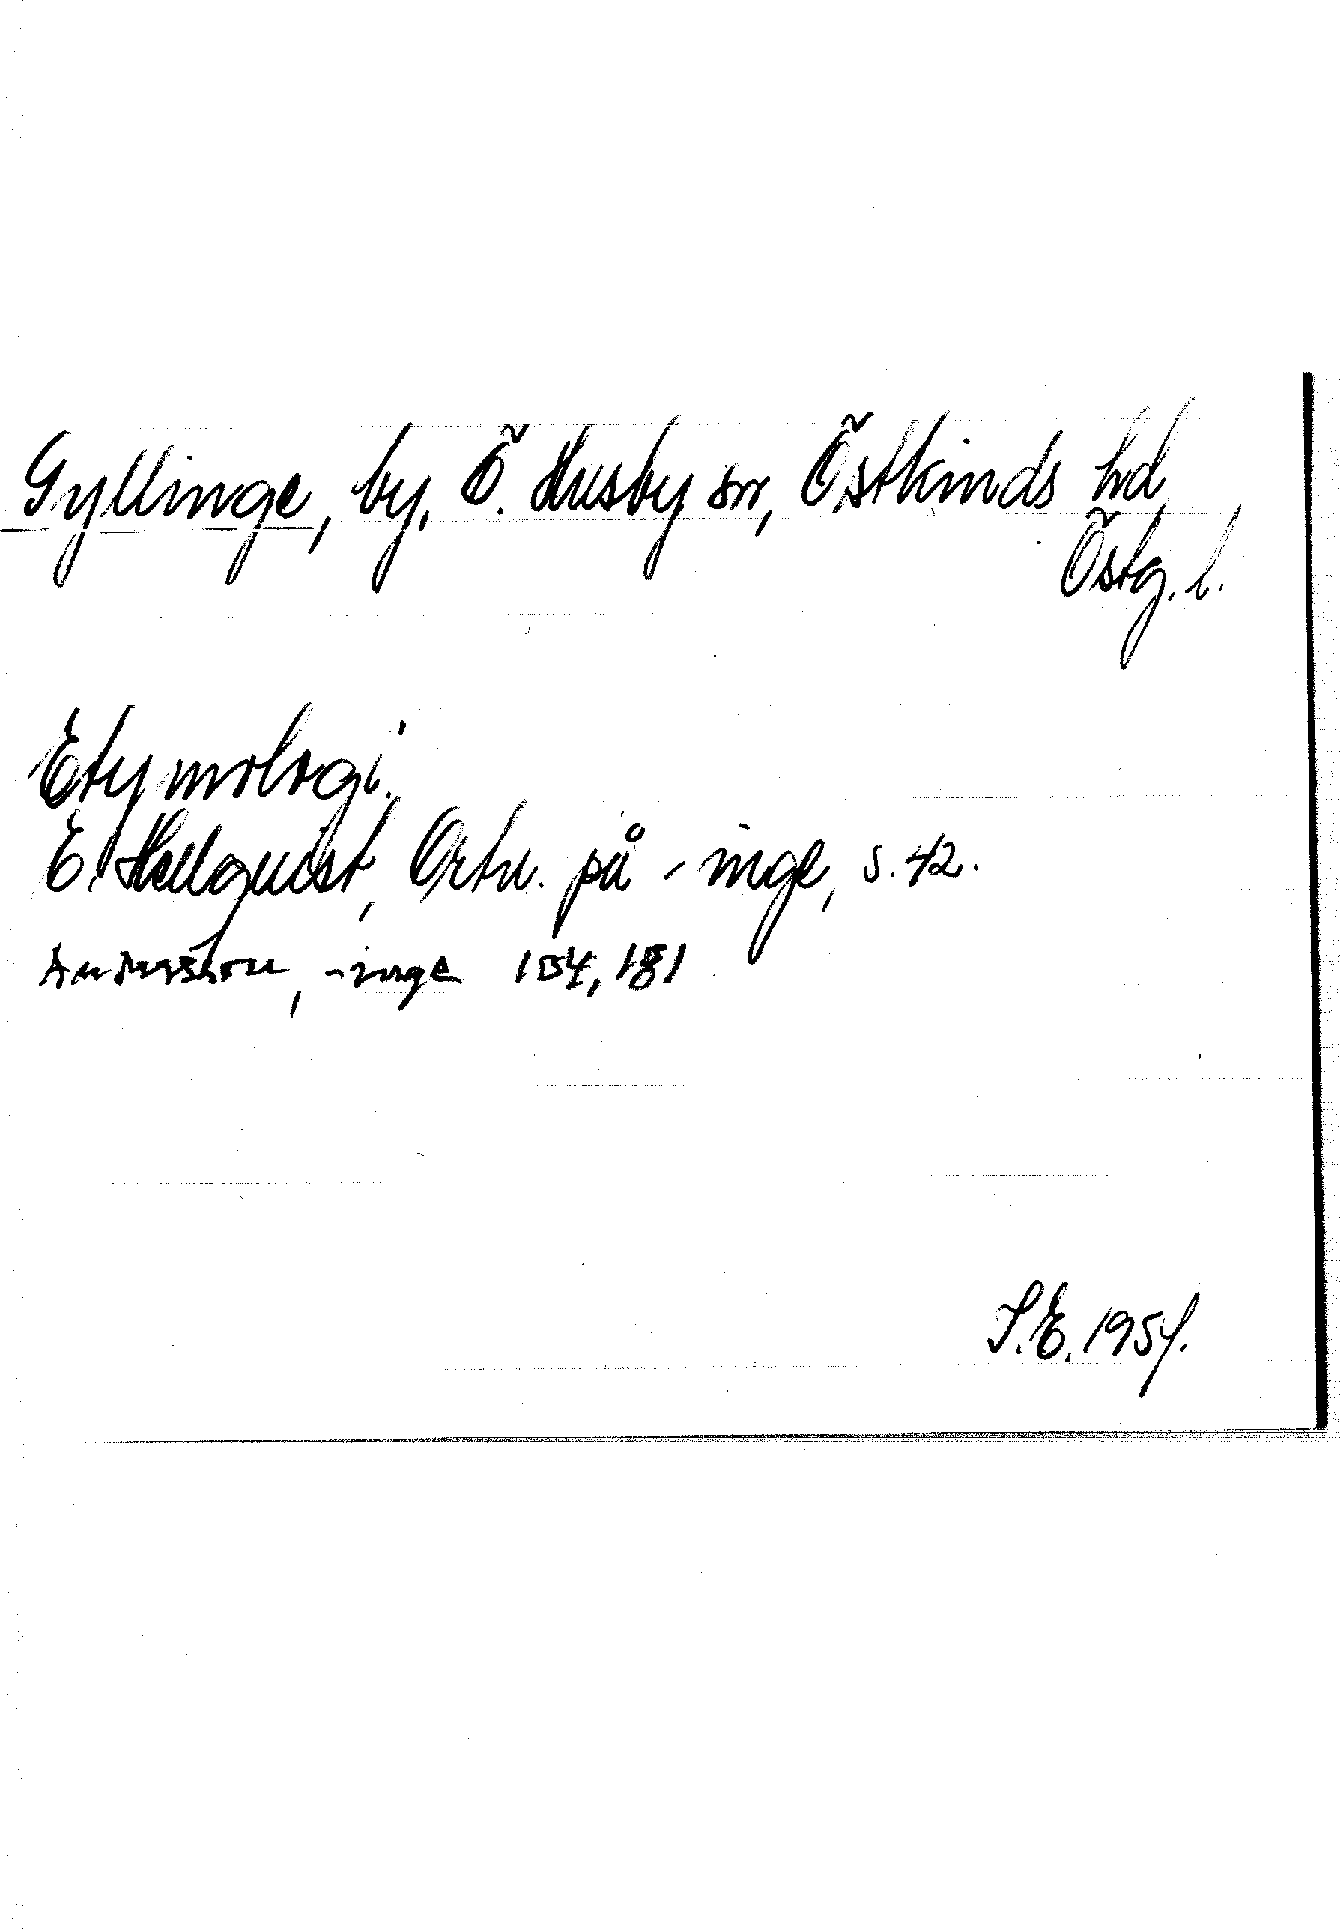 Gyllinge, by. Ö. Husby sn, Östkinds hd,
Östg. l.
Etymologi.
E. Hellquist, Ortn. på -inge, s. 42.
Andersson, -inge 154, 181
S.E. 1954.